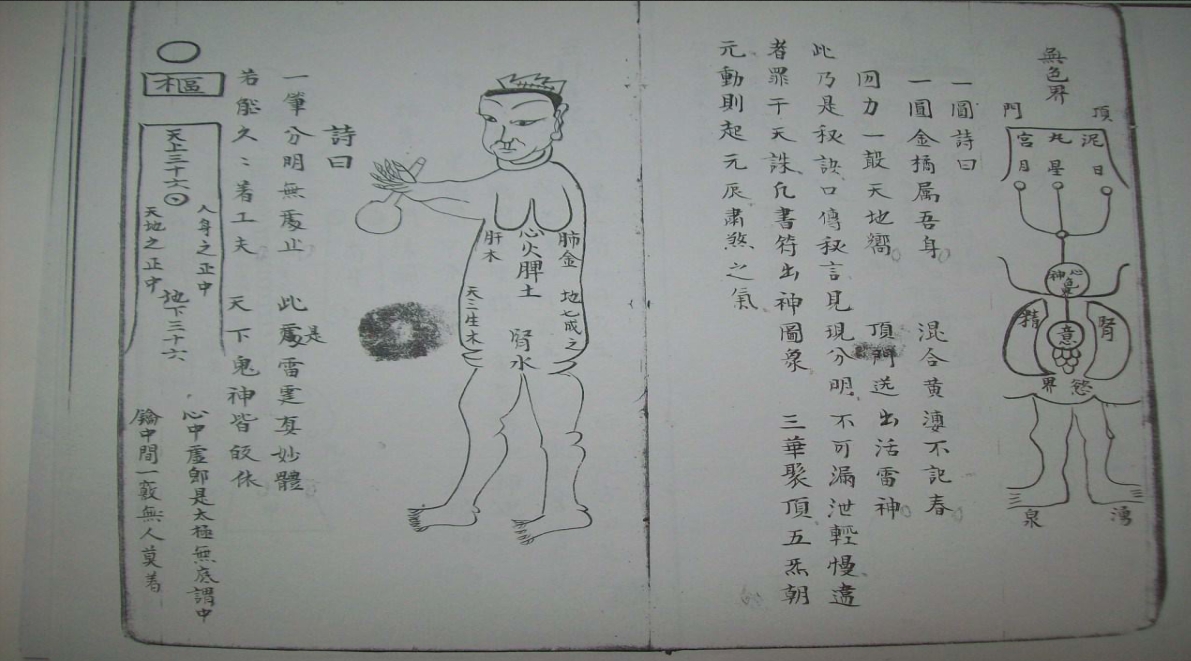 無色界
頂門
泥丸宮
日星月
心神
精
腎
意
慾界
湧泉
一圓詩曰
一圓金橘属吾身 混合黄 不記春
四力一 天地嚮 頂門迸出活雷神
此乃是秘訣口傳秘言見現分明不可漏泄輕慢違
者罪干天誅凡書符出神圖象 三華聚頂五炁朝
元動則起元辰肅煞之氣
肺金 地七成之
心火脾土
腎水
肝木
天三生木
詩曰
一筆分明無處止 此處是雷霆真妙體
若能久久着工夫 天下鬼神皆皈依
樞
人身之正中
天上三十六 地下三十六
天地之正中
心中虛 是太極無底謂中
鑰中間一竅無人莫着